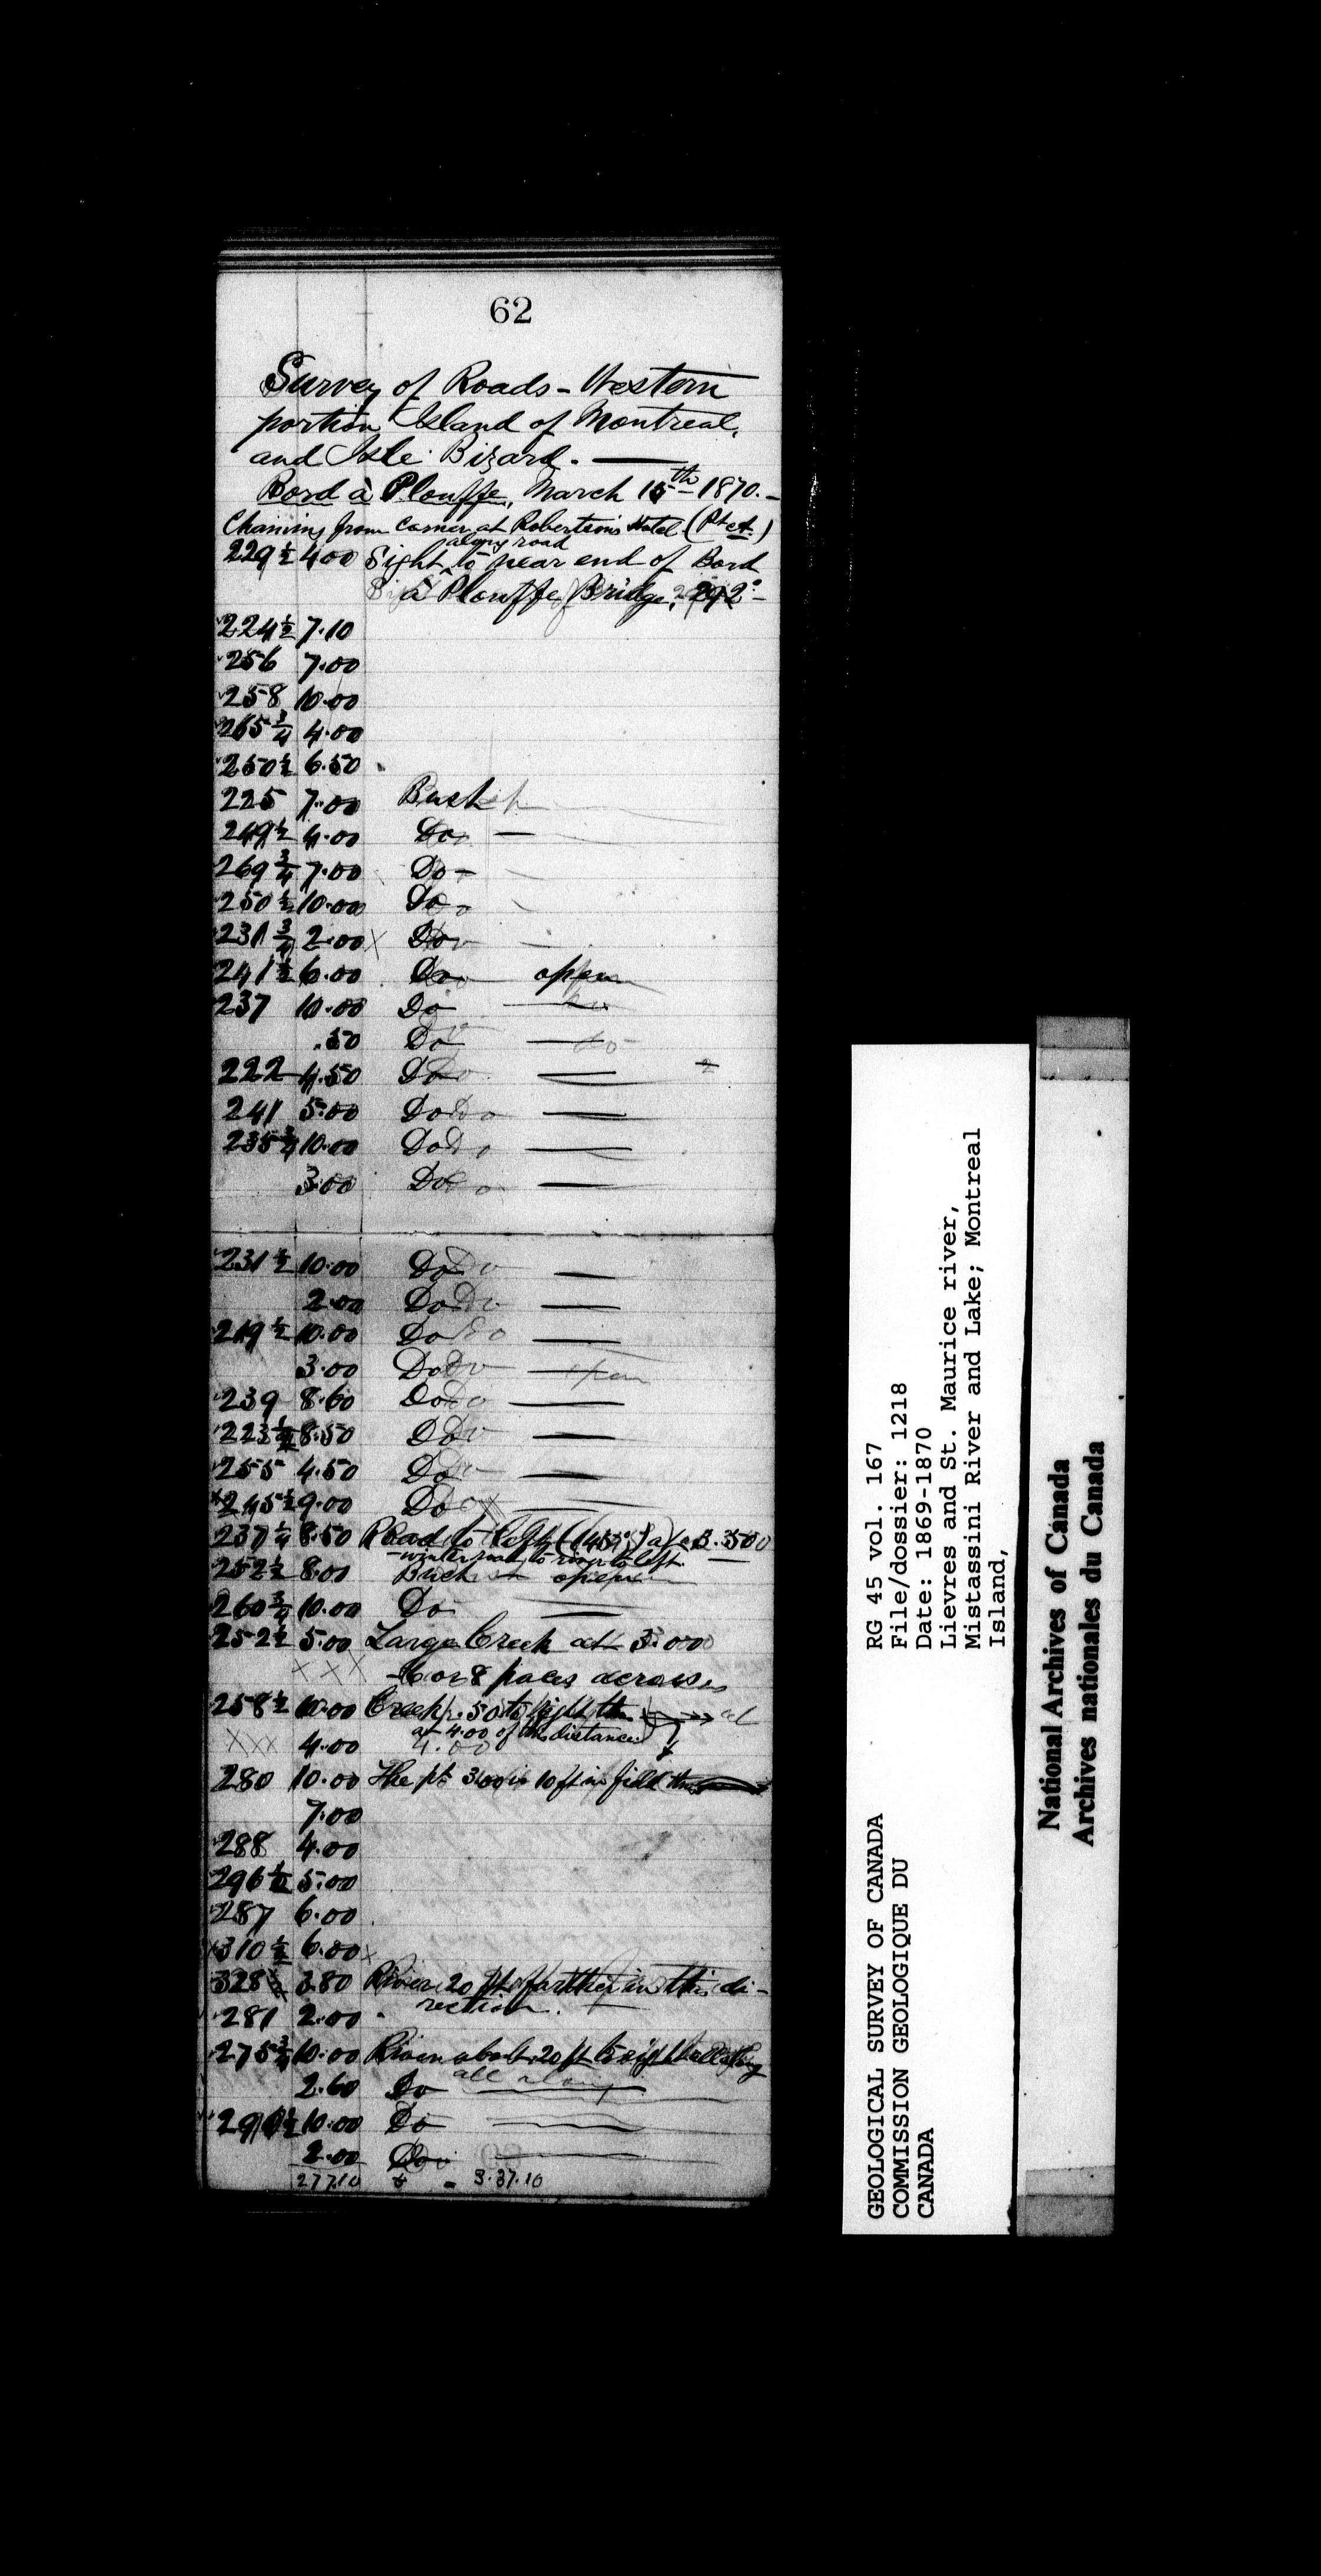 62
Survey of Roads - Western
portion Island of Montreal,
and Isle Bizard. —
Bord à Plouffe, March 15th 1870. -
Chaining from corner at Robertson's Hotel (Pt A.)
229½ 4.00 Sight along road to near end of Bord
à Plouffe Bridge, 292° -
224½ 7.10
256 7.00
258 10.00
265¾ 4.00
250½ 6.50
225 7.00 Bush
249½ 4.00 Do —
269¾ 7.00 Do -
250½ 10.00 Do -
231¾ 2.00 X Do
241½ 6.00 Do open
237 10.00 Do —
.50 Do —
222 4.50 Do —
241 5.00 Do —
235¾ 10.00 Do —
3.00 Do —
231½ 10.00 Do —
2.00 Do —
219½ 10.00 Do —
3.00 Do —
239 8.60 Do —
223½ 8.50 Do —
255 4.50 Do —
245½ 9.00 Do —
237¼ 8.50 Road to left (143°) at 3.50
- winter road to river to left.
252½ 8.00 Bush open
260¾ 10.00 Do —
252½ 5.00 Large Creek at 3.00
X X X - 6 or 8 paces across
258½ 10.00 Creek .50 to right
XXX 4.00 at 4.00 of this distance
280 10.00 The pt 3.00 is 10 ft in field
7.00
288 4.00
296½ 5.00
287 6.00
310½ 6.00 X
328½ 3.80 River 20 ft farther in this di-
rection.
281 2.00
275¾ 10.00 River about 20 ft to right all along
2.60 Do —
291½ 10.00 Do —
2.00 Do —
277.10 = 3.37.10
GEOLOGICAL SURVEY OF CANADA
COMMISSION GEOLOGIQUE DU
CANADA
RG 45 vol. 167
File/dossier: 1218
Date: 1869-1870
Lievres and St. Maurice river,
Mistassini River and Lake; Montreal
Island,
National Archives of Canada
Archives nationales du Canada